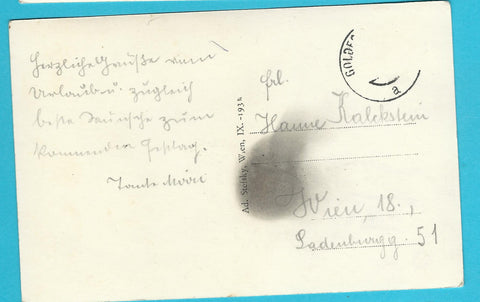 Herzliche Grüße vom
Urlaub u. zugleich
beste Wünsche zum
kommenden Festtag.
Tante Mitzi
Ad. Stelsky, Wien, IX. -1934
GOLDE
a
Frl.
Hanne Kalckstein
Wien, 18.,
Ladenburgg. 51